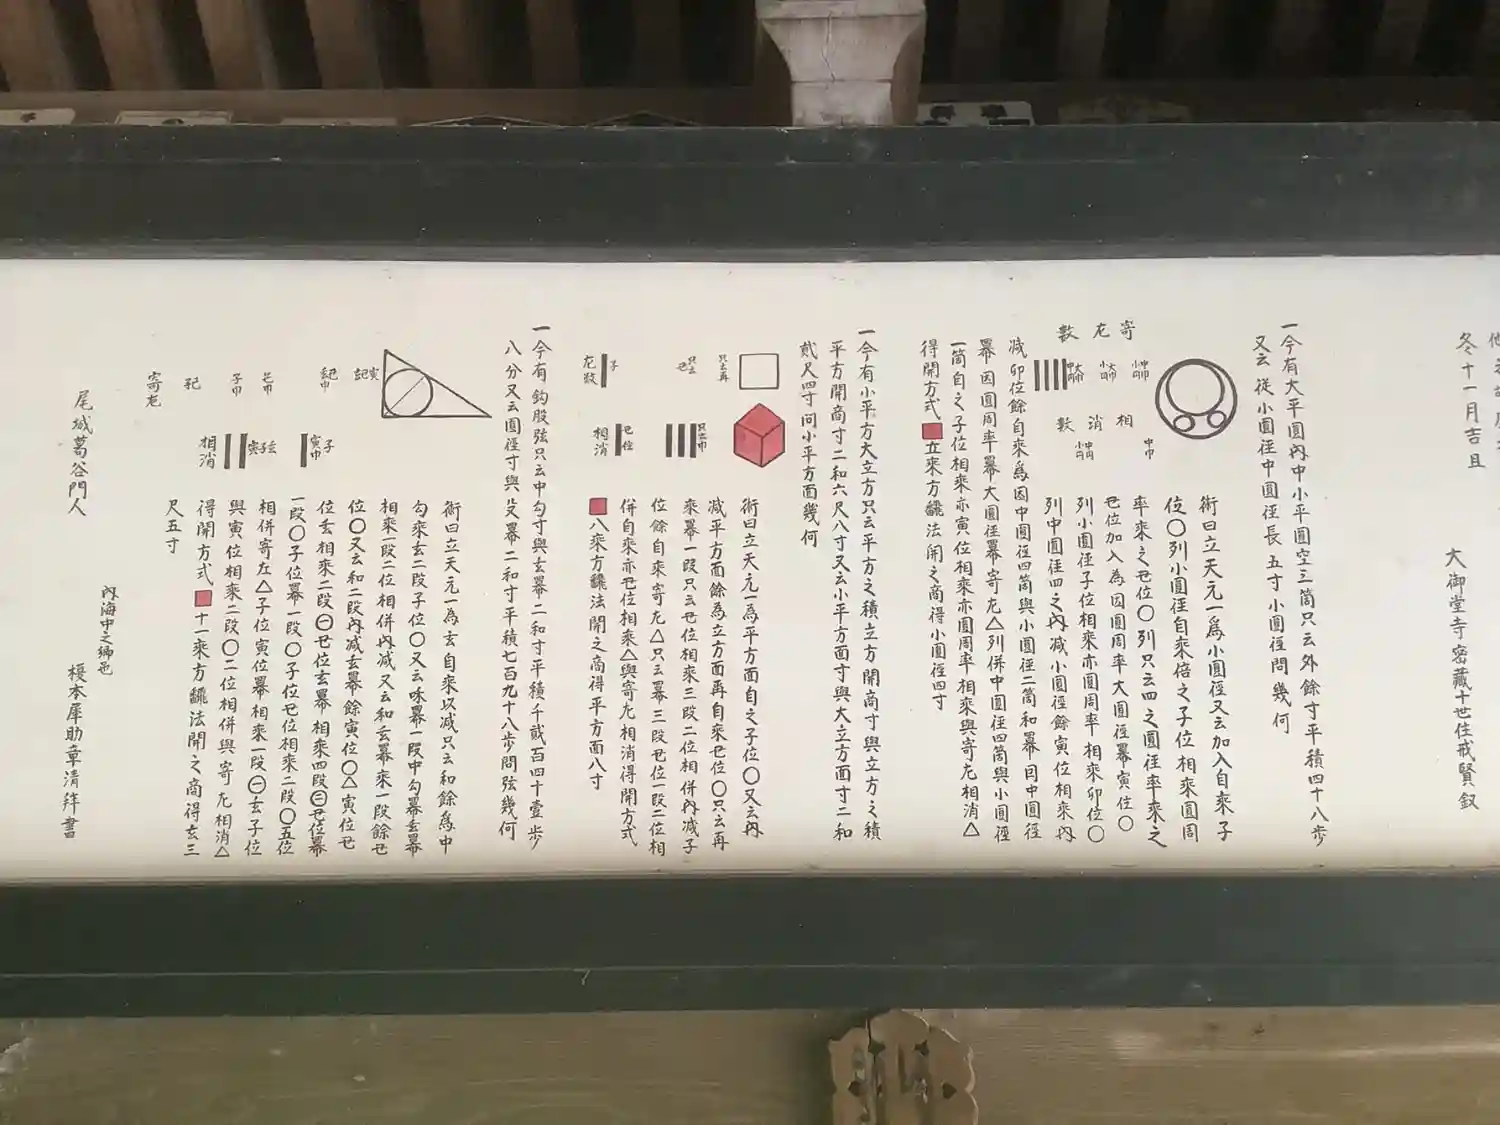 冬十一月吉旦
大御堂寺密藏十世住戒賢叙
一今有大平圓內中小平圓空三箇只云外餘寸平積四十八歩
又云從小圓徑中圓徑長五寸小圓徑問幾何
寄左數
相消數
術曰立天元一為小圓徑又云加入自乘子
位〇列小圓徑自乘倍之子位相乘圓周
率乘之丑位〇列只云四之圓徑率乘之
丑位加入為因圓周率大圓徑冪寅位〇
列小圓徑子位相乘亦圓周率相乘卯位〇
列中圓徑四之內減小圓徑餘寅位相乘內
減卯位餘自乘為因中圓徑四箇與小圓徑二箇和冪因中圓徑
冪因圓周率冪大圓徑冪寄左△列併中圓徑四箇與小圓徑
一箇自之子位相乘亦寅位相乘亦圓周率相乘與寄左相消△
得開方式 立乘方飜法開之商得小圓徑四寸
一今有小平方大立方只云平方之積立方開商寸與立方之積
平方開商寸二和六尺八寸又云小平方面寸與大立方面寸二和
貳尺四寸問小平方面幾何
術曰立天元一為平方面自之子位〇又云內
減平方面餘為立方面再自乘丑位〇只云再
乘冪一段只云丑位相乘三段二位相併內減子
位餘自乘寄左△只云冪三段丑位一段二位相
併自乘亦丑位相乘△與寄左相消得開方式
八乘方飜法開之商得平方面八寸
一今有鈎股弦只云中勾寸與玄冪二和寸平積千貳百四十壹歩
八分又云圓徑寸與殳冪二和寸平積七百九十八歩問弦幾何
術曰立天元一為玄自乘以減只云和餘為中
勾乘玄二段子位〇又云冪一段中勾冪玄冪
相乘一段二位相併內減又云和玄冪乘一段餘丑
位〇又云和二段內減玄冪餘寅位〇△寅位丑
位玄相乘二段㊀丑位玄冪相乘四段㊁丑位冪
一段〇子位冪一段〇子位丑位相乘二段〇五位
相併寄左△子位寅位冪相乘一段㊀玄子位
與寅位相乘二段〇二位相併與寄左相消△
得開方式 十一乘方飜法開之商得玄三
尺五寸
寄左
相消
尾城葛谷門人
內海中之鄉
榎本犀助章清拜書